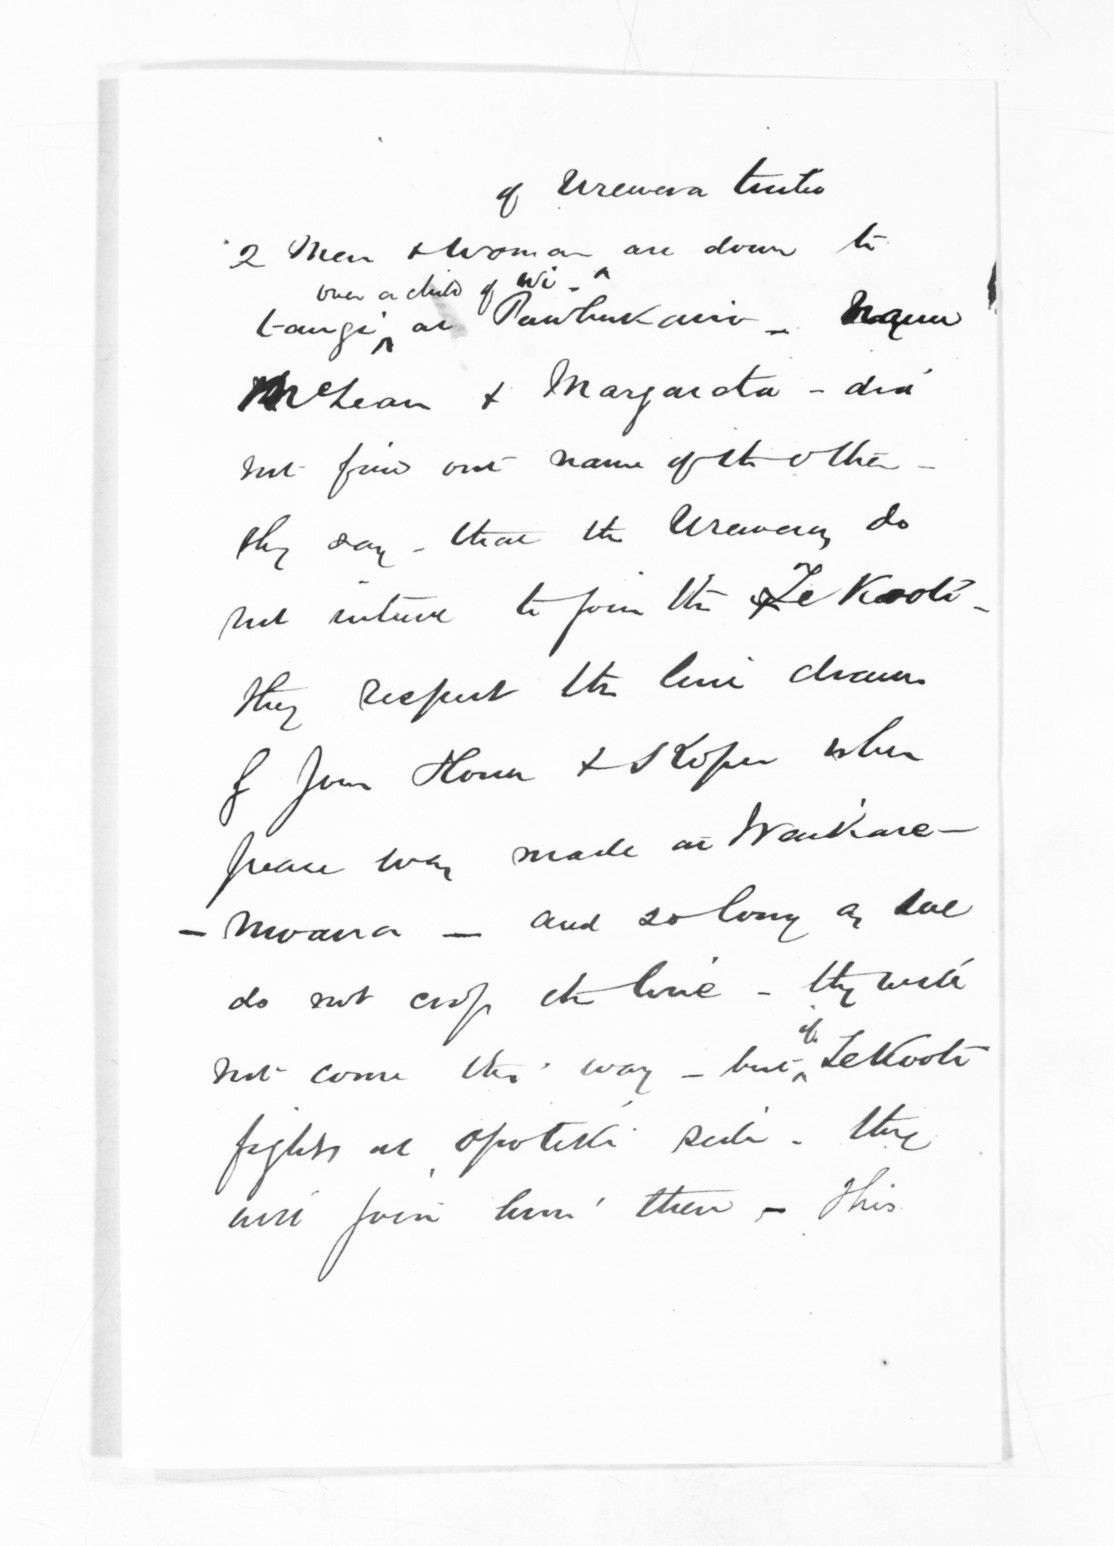 of Urewera tribe
2 Men & Woman are down to
over a child of Wi -
tangi at - Name
McLean & Margareta - did
not find out name of the other -
they say - that the Ureweras do
not intend to join the Te Kooti -
they respect the line drawn
& Kopu when
peace was made at Waikare-
- moana - and so long as we
do not cross the line - they will
not come this way - but Te Kooti
if
fights at Opotiki side - they
will join him there - This